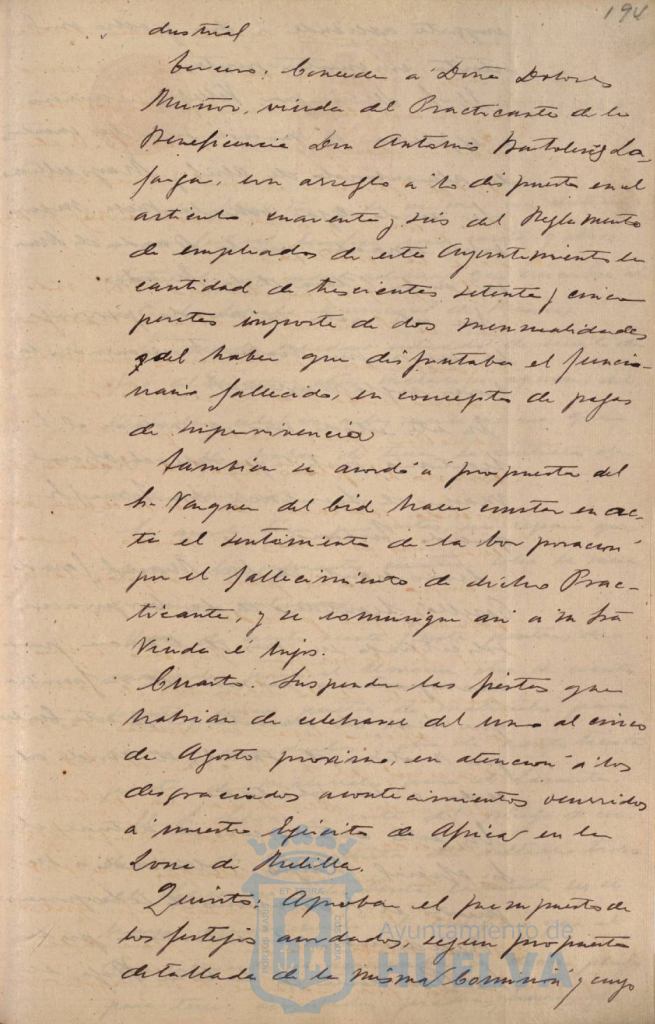 194
dustrial
Tercero: Conceder á Doña Dolores
Muñoz, viuda del Practicante de la
Beneficencia Don Antonio Bartolomé La-
farga, con arreglo a lo dispuesto en el
articulo cuarenta y seis del Reglamento
de empleados de este Ayuntamiento la
cantidad de trescientas setenta y cinco
pesetas importe de dos mensualidades
del haber que disfrutaba el funcio-
nario fallecido, en concepto de pagas
de supervivencia
Tambien se acordó á propuesta del
Sr. Vazquez del Cid hacer constar en ac-
ta el sentimiento de la Corporacion
por el fallecimiento de dicho Prac-
ticante, y se comunique asi a su Sra
Viuda é hijos.
Cuarto. Suspender las fiestas que
habian de celebrarse del uno al cinco
de Agosto proximo, en atencion á los
desgraciados acontecimientos ocurridos
á nuestro Ejército de Africa en la
Zona de Melilla.
Quinto: Aprobar el presupuesto de
los festejos acordados, segun propuesta
detallada de la misma Comision y cuyo
Ayuntamiento de
HUELVA